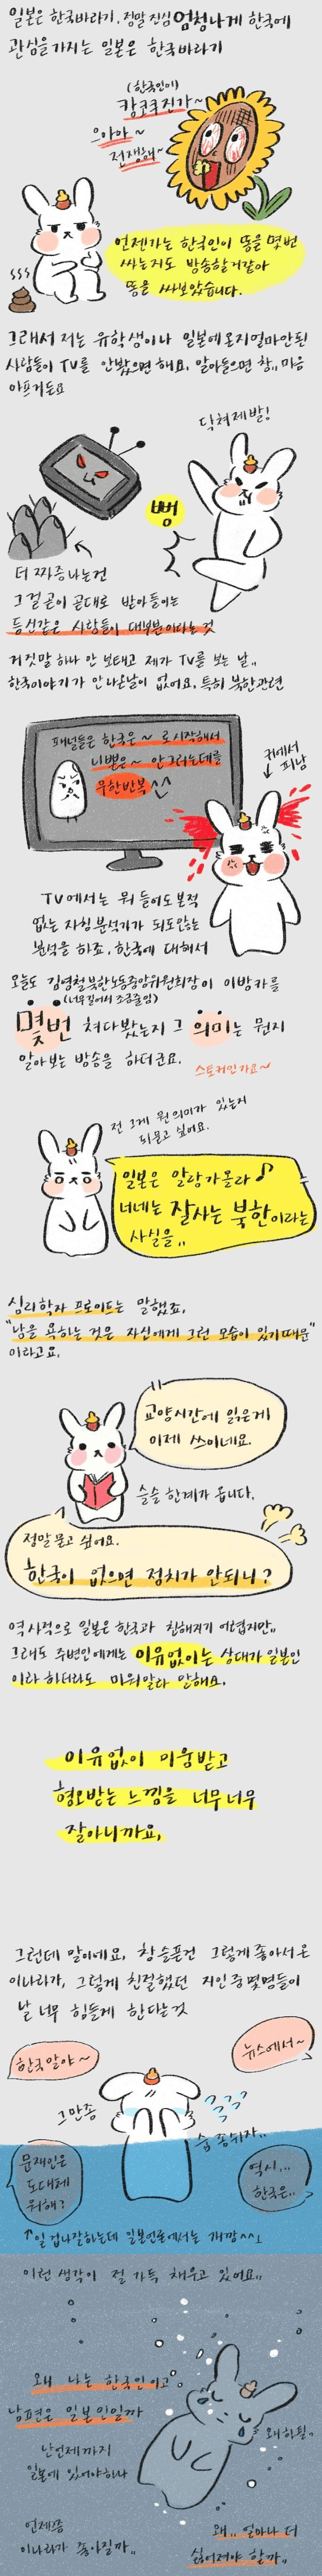 일본은 한국바라기. 정말 진심 엄청나게 한국에
관심을 가지는 일본은 한국바라기
(한국인이)
캉코쿠진가~
으아아~
전쟁해~
언젠가는 한국인이 똥을 몇번
싸는지도 방송할거같아
똥을 싸보았습니다.
그래서 저는 유학생이나 일본에 온지얼마안된
사람들이 TV를 안봤으면 해요. 알아들으면 참,, 마음
아프거든요
닥쳐제발!
뻥
더 짜증나는건
그걸 곧이 곧대로 받아들이는
등신같은 사람들이 대부분이라는 것
거짓말 하나 안 보태고 제가 TV를 보는 날,,
한국이야기가 안나온날이 없어요. 특히 북한관련
패널들은 한국은~ 로 시작해서
니뽄은~ 안그러는데를
무한반복^^
귀에서
피남
TV에서는 뭐 들어도 보적
없는 자칭분석가가 되도않는
분석을 하죠. 한국에 대해서
오늘도 김영철 북한노동중앙위원회장이 이방카를
(너무길어서 조금줄임)
몇번 쳐다봤는지 그 의미는 뭔지
알아보는 방송을 하더군요.
스토커인가요~
전 그게 뭔 의미가 있는지
되묻고 싶어요.
일본은 알랑가몰라♪
너네는 잘사는 북한이라는
사실을,,
심리학자 프로이트는 말했죠,
"남을 욕하는 것은 자신에게 그런 모습이 있기때문"
이라고요.
교양시간에 읽은게
이제 쓰이네요.
슬슬 한계가 옵니다.
정말 묻고 싶어요.
한국이 없으면 정치가 안되니?
역사적으로 일본은 한국과 친해지기 어렵지만,,
그래도 주변인에게는 이유없이는 상대가 일본인
이라 하더라도 미워말라 말해요.
이유없이 미움받고
혐오받는 느낌을 너무너무
잘아니까요,
그런데 말이에요, 참 슬픈건 그렇게 좋아서 온
이나라가, 그렇게 친절했던 지인 중 몇명들이
날 너무 힘들게 한다는것
한국말야~
뉴스에서~
그만좀
숨 좀쉬자..
문재인은
도대체
뭐해?
역시...
한국은..
↑일 겁나잘하는데 일본언론에서는 개깜^^ㅗ
이런 생각이 절 가득 채우고 있어요,,
왜 나는 한국인이고
남편은 일본인일까
왜하필,
난언제까지
일본에 있어야하나
언제쯤
이나라가 좋아질까,,
왜,, 얼마나 더
싫어져야 할까,,